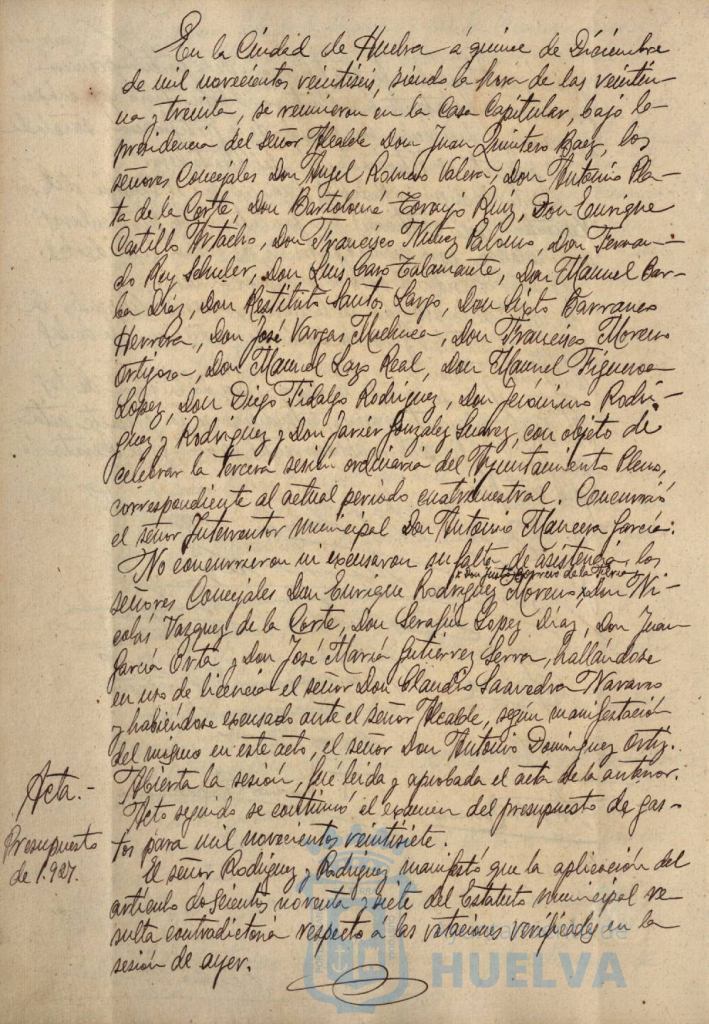 En la Ciudad de Huelva á quince de Diciembre
de mil novecientos veintiseis, siendo la hora de las veintiu-
na y treinta, se reunieron en la Casa Capitular, bajo la
presidencia del señor Alcalde Don Juan Quintero Baez, los
señores Concejales Don Angel Romero Valera, Don Antonio Pla-
ta de la Corte, Don Bartolomé Toronjo Ruiz, Don Enrique
Castillo Artacho, Don Francisco Nuñez Palomo, Don Fernan-
do Rey Schuler, Don Luis Caro Talamante, Don Manuel Bar-
ba Diaz, Don Restituto Santos Largo, Don Sixto Barranco
Herrera, Don José Vargas Machuca, Don Francisco Moreno
Ortigosa, Don Manuel Lazo Real, Don Manuel Figueroa
Lopez, Don Diego Fidalgo Rodriguez, Don Jerónimo Rodri-
guez y Rodriguez y Don Javier Gonzalez Suarez, con objeto de
celebrar la tercera sesión ordinaria del Ayuntamiento Pleno,
correspondiente al actual periodo cuatrimestral. Concurrió
el señor Interventor municipal Don Antonio Mancera Garcia.
No concurrieron ni excusaron su falta de asistencia, los
x Don Justo Borrero de la Feria
señores Concejales Don Enrique Rodriguez Moreno, x Don Ni-
colás Vazquez de la Corte, Don Serafin Lopez Diaz, Don Juan
Garcia Orta y Don José Maria Gutierrez Serra, hallándose
en uso de licencia el señor Don Claudio Saavedra Navarro
y habiéndose excusado ante el señor Alcalde, según manifestación
del mismo en este acto, el señor Don Antonio Dominguez Ortiz.
Acta.-
Abierta la sesión, fué leida y aprobada el acta de la anterior.
Presupuesto
de 1.927.
Acto seguido se continuó el examen del presupuesto de gas-
tos para mil novecientos veintisiete.
El señor Rodriguez y Rodriguez manifestó que la aplicación del
artículo doscientos noventa y siete del Estatuto municipal re-
sulta contradictoria respecto á las votaciones verificadas en la
sesión de ayer.
HUELVA